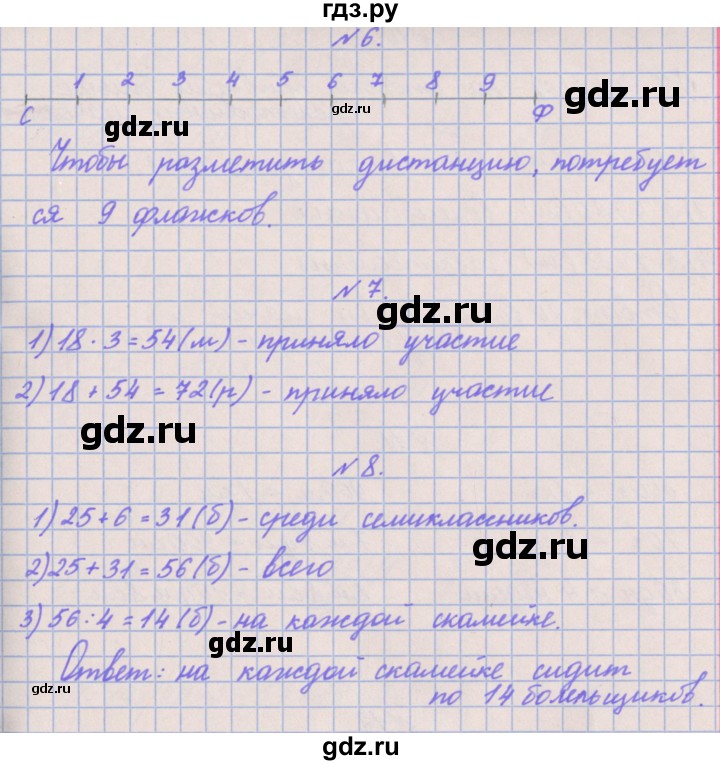 гдз.ру
№6.
1 2 3 4 5 6 7 8 9
С Ф
gdz.ru
gdz.ru
gdz.ru
Чтобы разметить дистанцию, потребует
ся 9 флажков.
№7.
gdz.ru
1) 18 · 3 = 54 (м) - приняло участие
2) 18 + 54 = 72 (р) - приняло участие
gdz.ru
№8.
1) 25 + 6 = 31 (б) - среди семиклассников.
gdz.ru
2) 25 + 31 = 56 (б) - всего
3) 56 : 4 = 14 (б) - на каждой скамейке.
gdz.ru
Ответ: на каждой скамейке сидит
gdz.ru
по 14 болельщиков.
gdz.ru